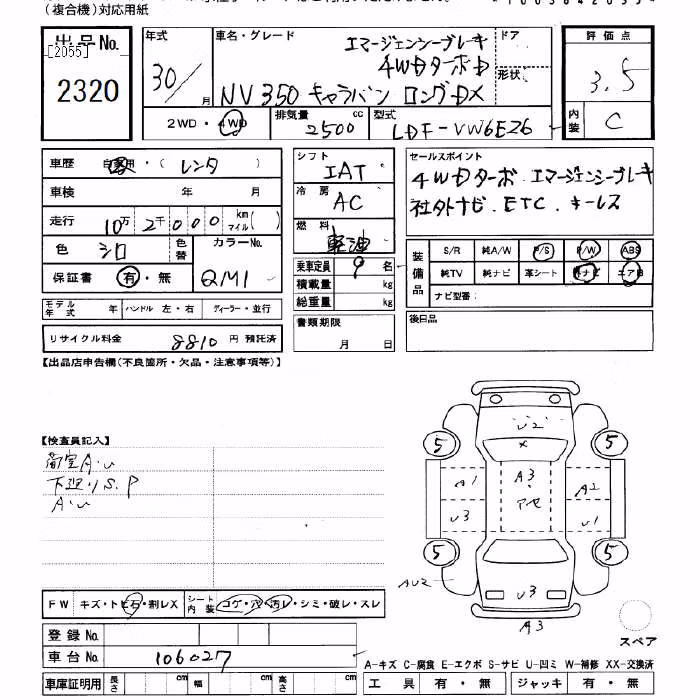 (複合機)対応用紙
出品No.
[2055]
2320
年式
30/
月
車名・グレード
エマージェンシーブレーキ
4WDターボD
NV350 キャラバン ロングDX
ドア
形状
評価点
3.5
2WD・4WD
排気量
2500
cc
型式
LDF-VW6E26
内装
C
車歴
自家用・(レンタ)
車検
年
月
走行
10万2千000
km
マイル
( )
色
シロ
色替
カラーNo.
QM1
保証書
有・無
モデル年式
年
ハンドル 左・右
ディーラー・並行
リサイクル料金
8810
円 預託済
シフト
IAT
冷房
AC
燃料
軽油
乗車定員
9
名
積載量
kg
総重量
kg
書類期限
月
日
セールスポイント
4WDターボ. エマージェンシーブレーキ
社外ナビ. ETC. キーレス
装備品
S/R
純A/W
P/S
P/W
ABS
純TV
純ナビ
革シート
ナビ
エアB
ナビ型番:
後日品
【出品店申告欄(不良箇所・欠品・注意事項等)】
【検査員記入】
荷室A・U
下廻りS.P
A・U
U2
×
5
5
A1
A3
A2
アセ
U3
U1
5
5
AU2
U3
A3
スペア
FW
キズ・トビ石・割レX
シート内装
コゲ・穴・汚レ・シミ・破レ・スレ
登録No.
車台No.
106027
車庫証明用
長さ
cm
幅
cm
高さ
cm
A-キズ C-腐食 E-エクボ S-サビ U-凹ミ W-補修 XX-交換済
工具
有・無
ジャッキ
有・無